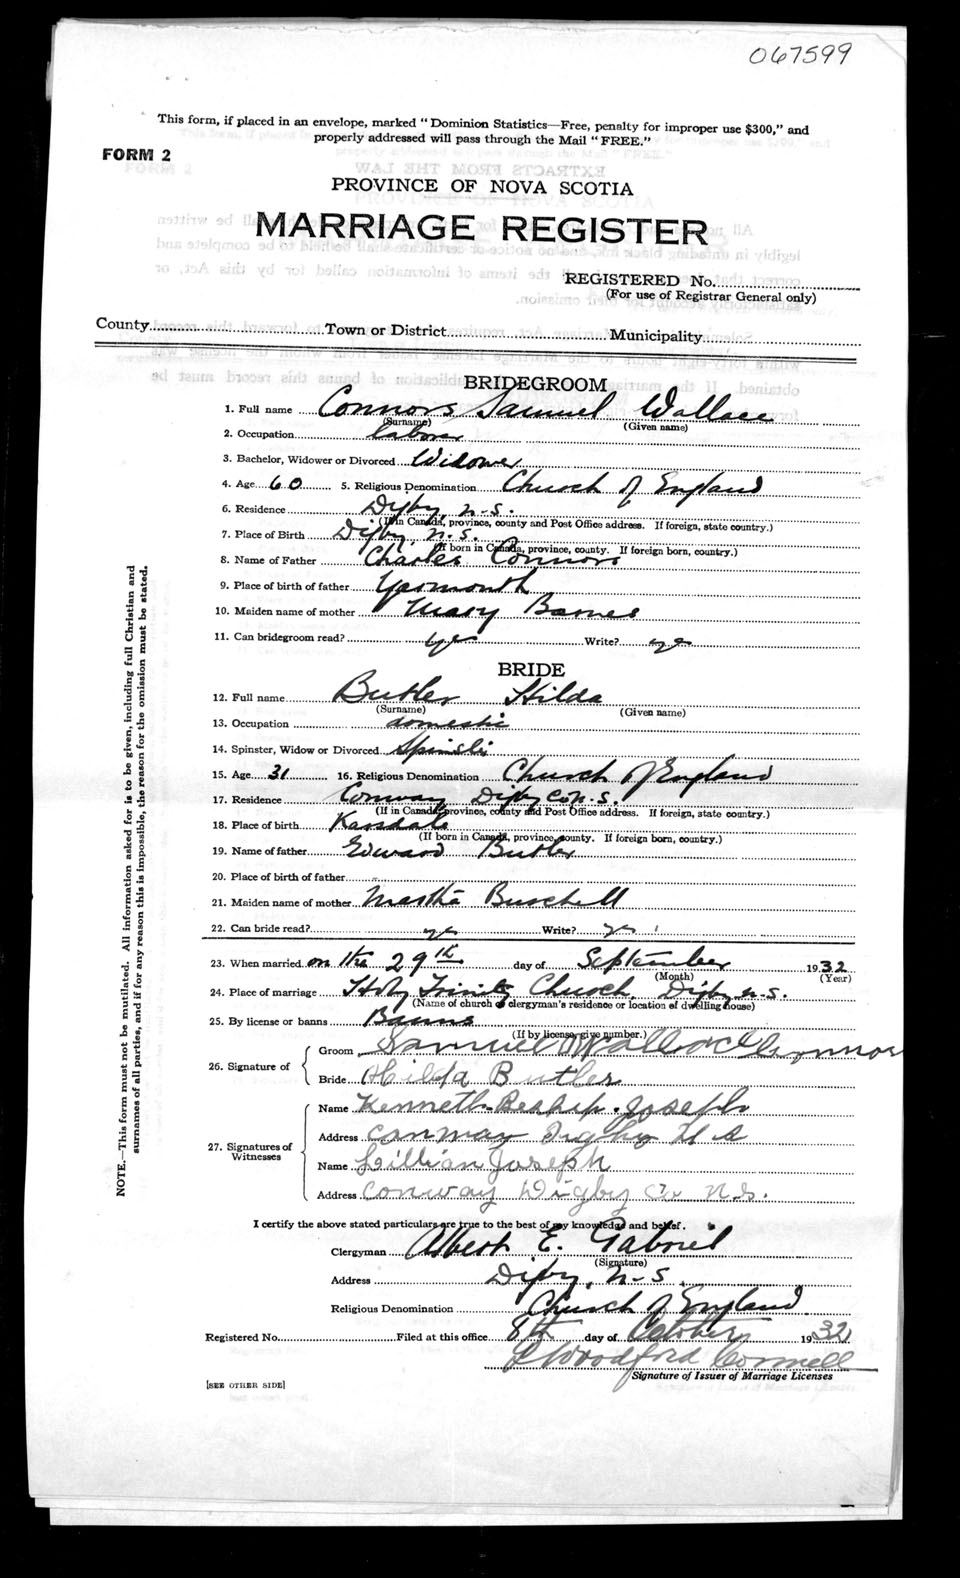 067599
This form, if placed in an envelope, marked "Dominion Statistics—Free, penalty for improper use $300," and
properly addressed will pass through the Mail "FREE."
FORM 2
PROVINCE OF NOVA SCOTIA
MARRIAGE REGISTER
REGISTERED No.
(For use of Registrar General only)
County Town or District Municipality
BRIDEGROOM
1. Full name Connors Samuel Wallace
(Surname) (Given name)
2. Occupation laborer
3. Bachelor, Widower or Divorced Widower
4. Age 60 5. Religious Denomination Church of England
6. Residence Digby, N.S.
(If in Canada, province, county and Post Office address. If foreign, state country.)
7. Place of Birth Digby, N.S.
(If born in Canada, province, county. If foreign born, country.)
8. Name of Father Charles Connors
9. Place of birth of father Yarmouth
10. Maiden name of mother Mary Barnes
11. Can bridegroom read? yes Write? yes
BRIDE
12. Full name Butler Hilda
(Surname) (Given name)
13. Occupation domestic
14. Spinster, Widow or Divorced Spinster
15. Age 31 16. Religious Denomination Church of England
17. Residence Conway Digby Co N.S.
(If in Canada, province, county and Post Office address. If foreign, state country.)
18. Place of birth Karsdale
(If born in Canada, province, county. If foreign born, country.)
19. Name of father Edward Butler
20. Place of birth of father
21. Maiden name of mother Martha Burchell
22. Can bride read? yes Write? yes
23. When married on the 29th day of September 1932
(Month) (Year)
24. Place of marriage Holy Trinity Church, Digby N.S.
(Name of church or clergyman's residence or location of dwelling house)
25. By license or banns Banns
(If by license, give number.)
26. Signature of
Groom Samuel Wallace Connors
Bride Hilda Butler
27. Signatures of
Witnesses
Name Kenneth Joseph
Address Conway Digby N S
Name Lillian Joseph
Address Conway Digby Co N.S.
I certify the above stated particulars are true to the best of my knowledge and belief.
Clergyman Albert E. Gabriel
(Signature)
Address Digby, N.S.
Religious Denomination Church of England
Registered No. Filed at this office 8th day of October 1932
Woodford Connell
Signature of Issuer of Marriage Licenses
[SEE OTHER SIDE]
NOTE.—This form must not be mutilated. All information asked for is to be given, including full Christian and
surnames of all parties, and if for any reason this is impossible, the reason for the omission must be stated.